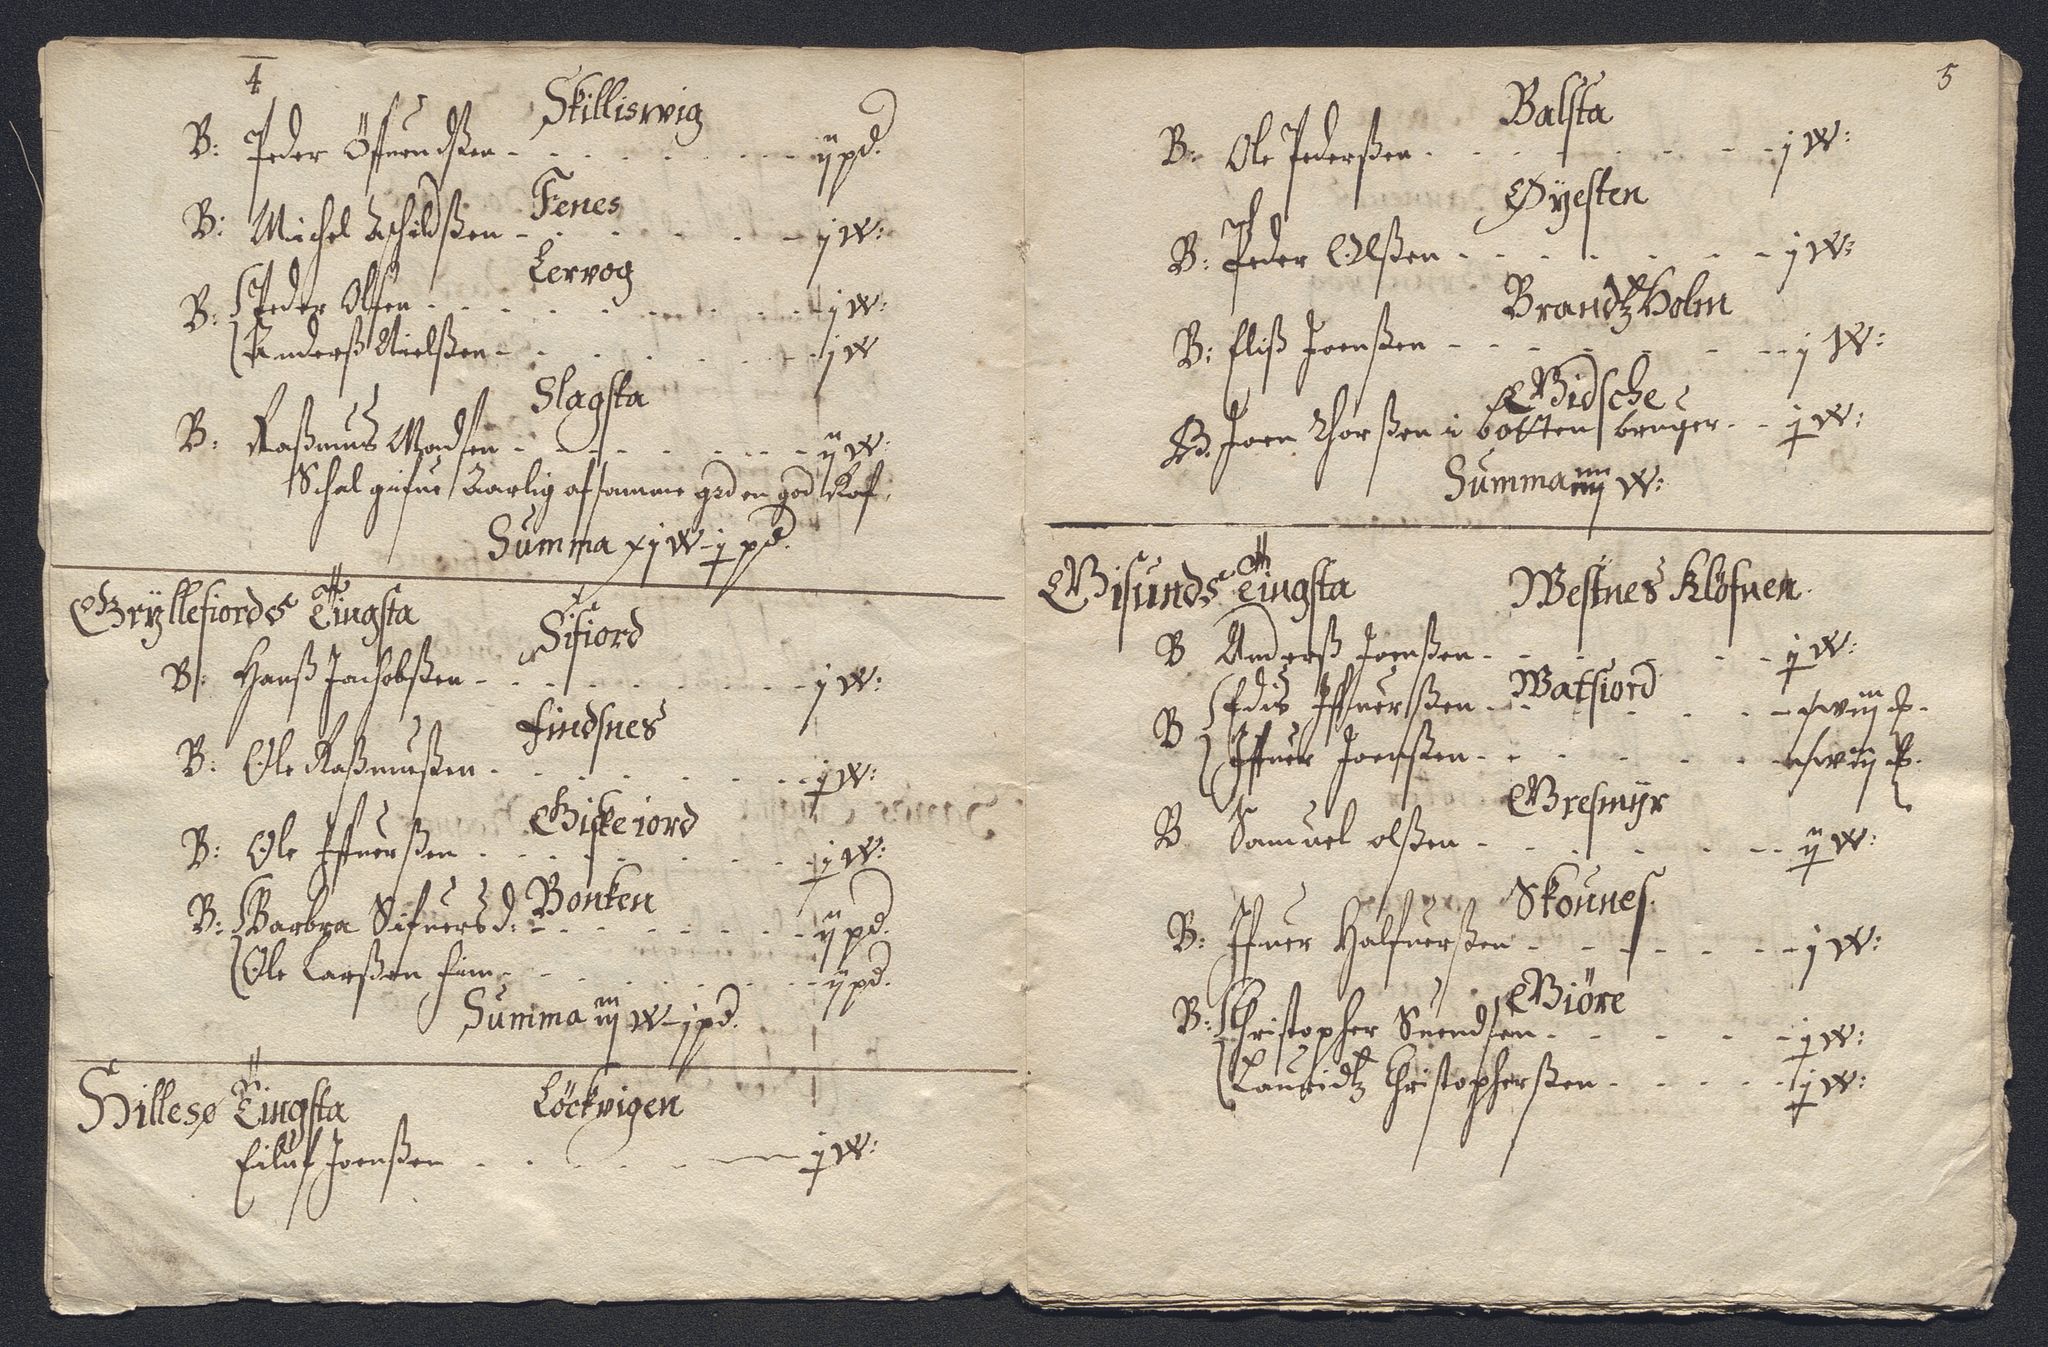 4
Skilliswig
B: Peder Öffuendßen - - - - - - - ij pd.
Fenes
B: Michel Aschildßen - - - - - - - j W:
Lervog
B: Peder Olsen - - - - - - - - j W:
Anderß Nielßen - - - - - - - j W
Slagsta
B: Raßmus Madsen - - - - - - - ij W:
Schal gifue Aarlig af samme grd en god
Summa xj W - j pd.
Gryllefiords Tingsta
Sifiord
B: Hanß Jachobßen - - - - - - - j W:
Findsnes
B: Ole Raßmußen - - - - - - - j W:
Gickeiord
B: Ole Iffuerßen - - - - - - - j W:
Bonken
B: Barbra Sifuersd: - - - - - - - ij pd.
Ole Larßen - - - - - - - ij pd.
Summa iiij W - j pd.
Hillesø Tingsta
Löckvigen
Eiluf Joenßen - - - - - j W:
5
Balsta
B: Ole Pederßen - - - - - - - j W:
Øyesten
B: Peder Olßen - - - - - - - j W:
Brandtz Holm
B: Eliß Joenßen - - - - - - - j W:
Gidsche
B. Joen Thorßen i botten bruger - - j W:
Summa iiij W:
Gisunds Tingsta
Westnes Klöfuen
B Anderß Joenßen - - - - - - j W:
Watfiord
B Edis Iffuerßen - - - - - -
Iffuer Joenßen - - - - - -
Gresmyr
B Samuel olßen - - - - - - ij W:
Skounes
B: Ifuer Halfuerßen - - - - - - j W:
Giöre
B: Christopher Suendsen - - - - - j W:
Lauridtz Christopherßen - - - - - j W: